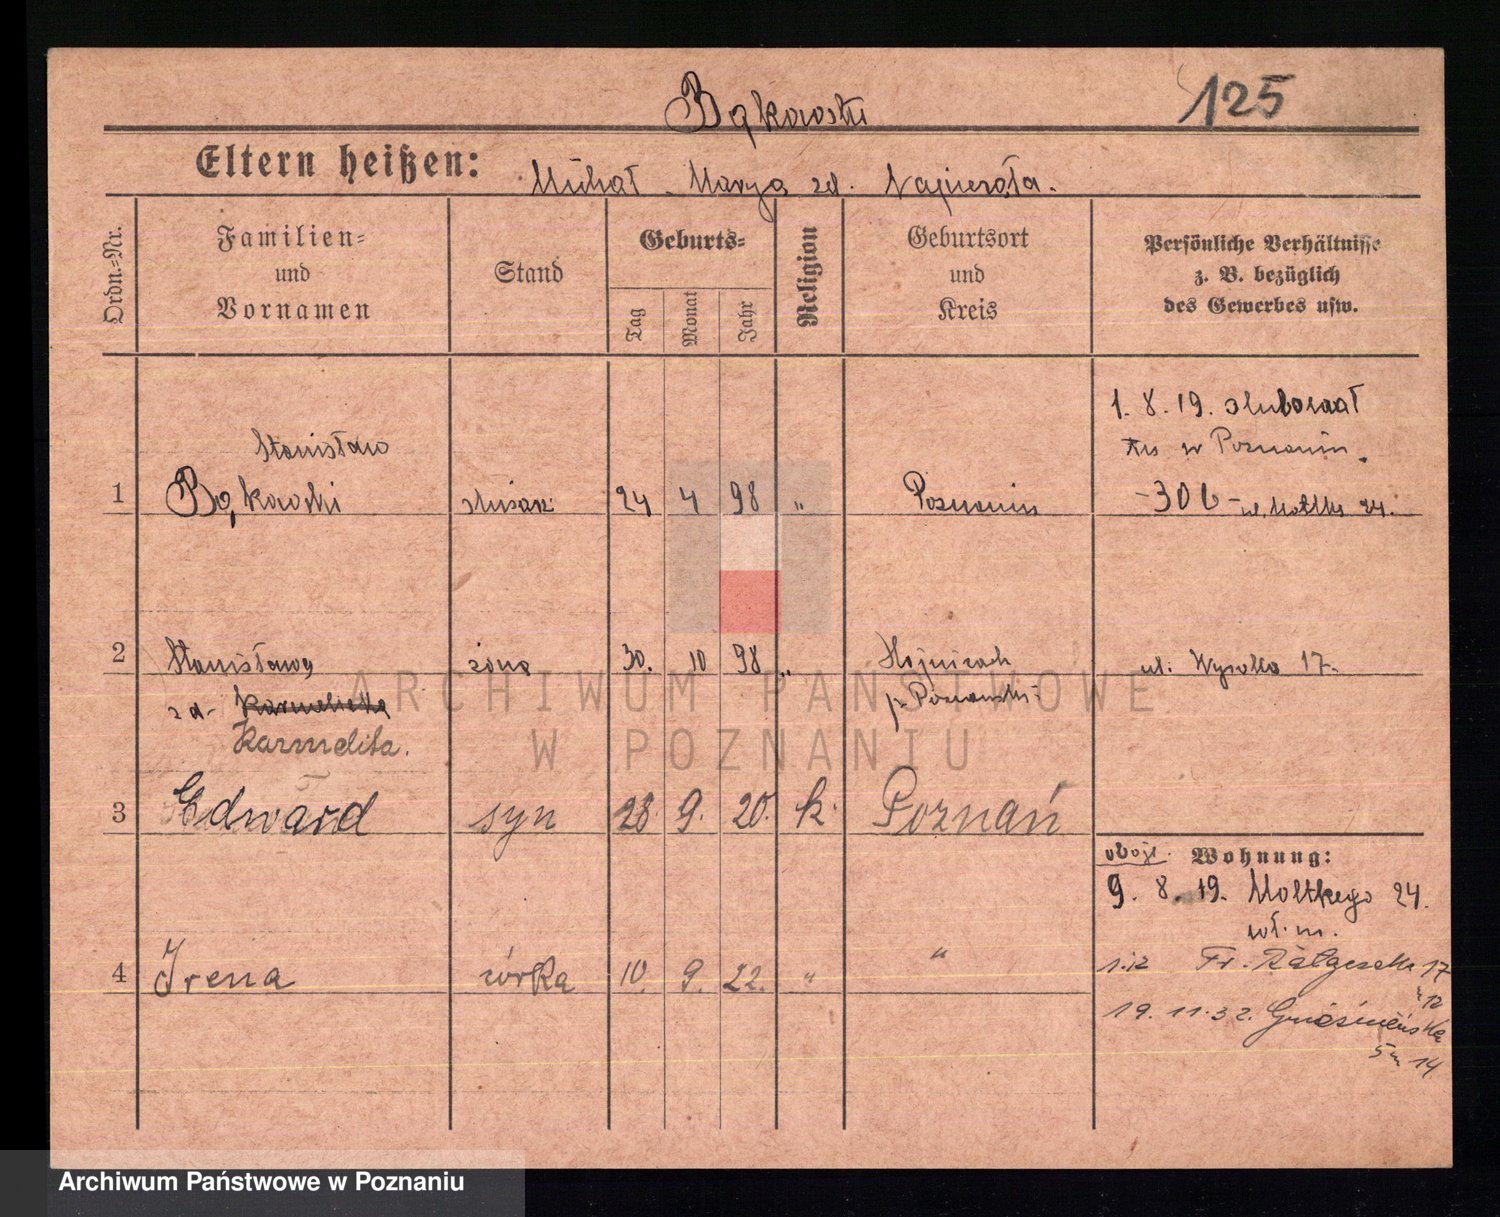 Bąkowski 125
Eltern heißen: Michał - Marya zd. Napierała.
Ordn.=Nr.
Familien=
und
Vornamen
Stand
Geburts=
Tag
Monat
Jahr
Religion
Geburtsort
und
Kreis
Persönliche Verhältnisse
z. B. bezüglich
des Gewerbes usw.
1. 8. 19.
w Poznaniu.
Stanisław
1 Bąkowski 24 4 98 " Poznaniu 24.
2 Stanisława żona 30. 10 98 " ul. Wysoka 17.
zd. Karmelita.
3 Edward syn 28. 9. 20. k. Poznań
Wohnung:
9. 8. 19. Moltkego 24.
4 Irena córka 10. 9. 22. " "
1.12 Fr. Ratajczaka 17
12
19. 11. 32. Gnieźnieńska
5 m 14
ARCHIWUM PAŃSTWOWE
W POZNANIU
Archiwum Państwowe w Poznaniu